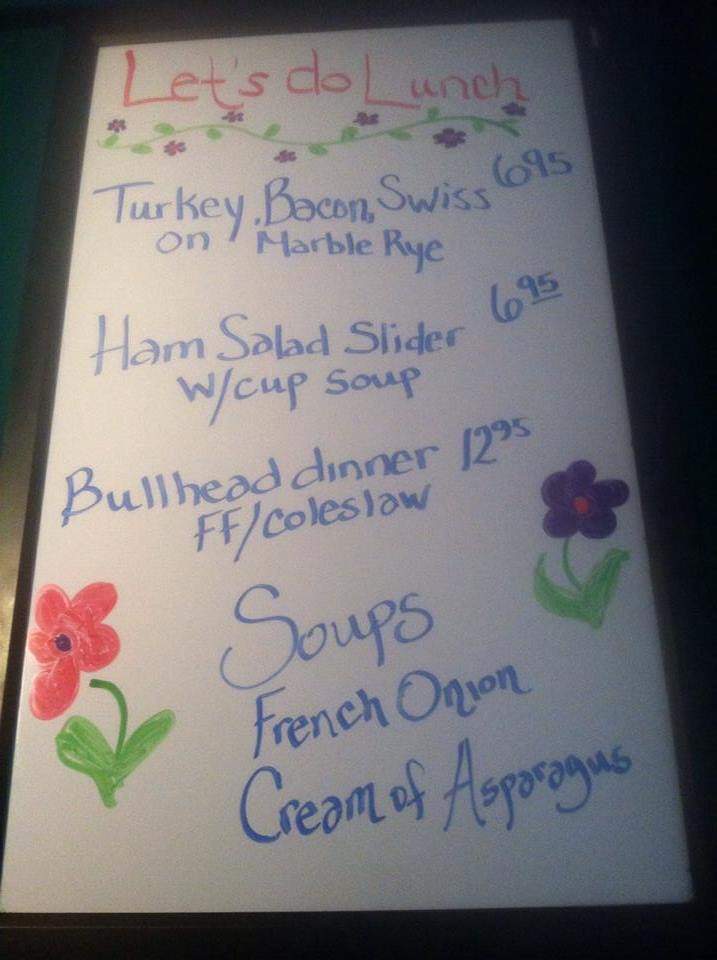 Let's do Lunch
Turkey, Bacon, Swiss 695
on Marble Rye
Ham Salad Slider 6 95
w/cup soup
Bullhead dinner 12 95
FF/coleslaw
Soups
French Onion
Cream of Asparagus